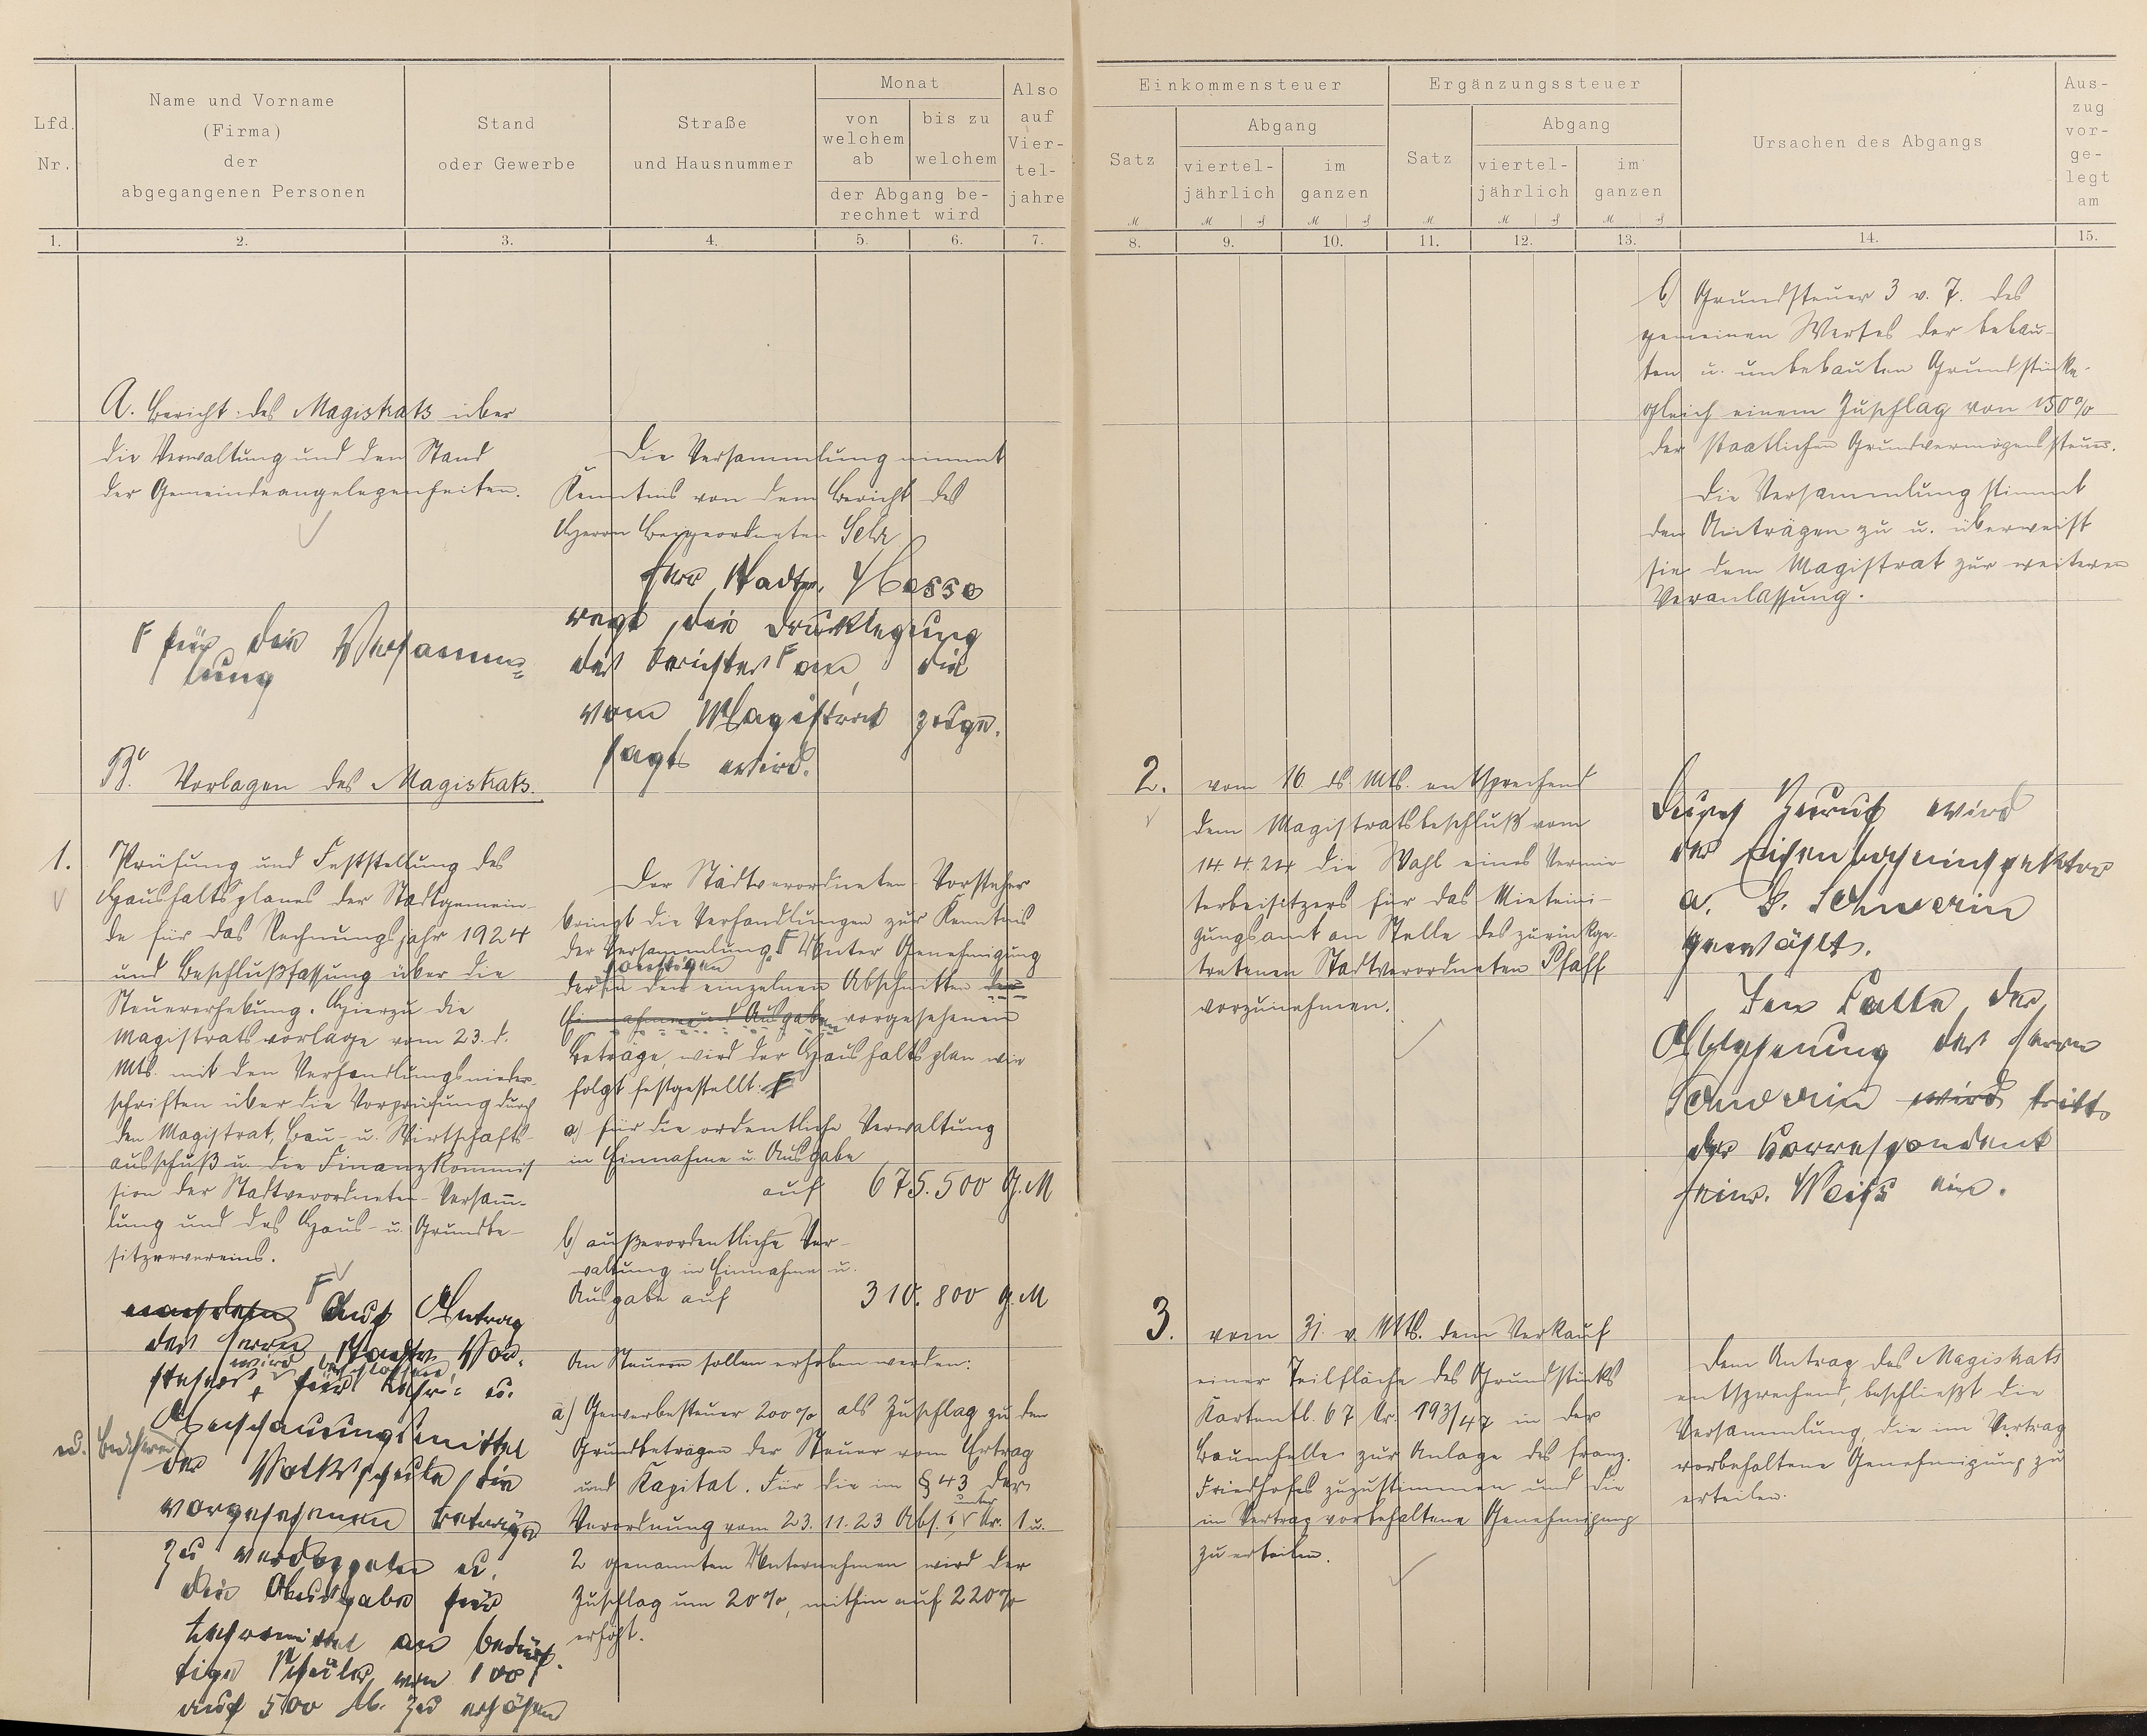 Lfd. Nr.
Name und Vorname
(Firma)
der
abgegangenen Personen
Stand
oder Gewerbe
Straße
und Hausnummer
Monat
von welchem ab
bis zu welchem
der Abgang be-
rechnet wird
Also auf Vier-tel-jahre
1. 2. 3. 4. 5. 6. 7.
A. Bericht des Magistrats über
die Verwaltung und den Stand
der Gemeindeangelegenheiten.
Die Versammlung nimmt
Kenntnis von dem Bericht des
Herrn Beigeordneten
Herr Stadtv. Hesse
regt die Drucklegung
des Berichtes F an, die
vom Magistrat zuge-
sagt wird.
F für die Versamm=
lung
B. Vorlagen des Magistrats.
1. Prüfung und Feststellung des
Haushaltsplanes der Stadtgemein-
de für das Rechnungsjahr 1924
und Beschlußfassung über die
Steuererhebung. Hierzu die
Magistratsvorlage vom 23. d.
Mts. mit den Verhandlungsnieder-
schriften über die Vorprüfung durch
den Magistrat, Bau- u. Wirtschafts-
ausschuß u. die Finanzkommis
sion der Stadtverordneten-Versamm-
lung und des Haus- u. Grundbe-
sitzervereins.
nachdem F Auf Antrag
des Herrn Stadtv. Vor-
stehers wird beschlossen, für Lehr- u.
Anschauungsmittel
u. Bücherei
der Volksschule die
vorgesehenen Beträge
zu verdoppeln u.
die Ausgabe für
Lernmittel an bedürf-
tige Schüler von 100
auf 500 M. zu erhöhen
Der Stadtverordneten-Vorsteher
bringt die Verhandlungen zur Kenntnis
der Versammlung. F Unter Genehmigung
der sonstigen in den einzelnen Abschnitten der
Einnahme und Ausgaben vorgesehenen
Beträge, wird der Haushaltsplan wie
folgt festgestellt: F
a) für die ordentliche Verwaltung
in Einnahme u. Ausgabe
auf 675.500 G.M
b) außerordentliche Ver-
waltung in Einnahme u.
Ausgabe auf 310.800 G.M
An Steuern sollen erhoben werden:
a) Gewerbesteuer 200% als Zuschlag zu den
Grundbeträgen der Steuer vom Ertrag
und Kapital. Für die im § 43 der
Verordnung vom 23.11.23 Abs. unter Nr. 1 u.
2 genannten Unternehmen wird der
Zuschlag um 20%, mithin auf 220%
erhöht.
Einkommensteuer
Satz
Abgang
viertel-jährlich
im ganzen
Ergänzungssteuer
Satz
Abgang
viertel-jährlich
im ganzen
Ursachen des Abgangs
Aus-zug vor-ge-legt am
8. 9. 10. 11. 12. 13. 14. 15.
b) Grundsteuer 3 v. T. des
gemeinen Wertes der bebau-
ten u. unbebauten Grundstücke-
gleich einem Zuschlag von 150%
der staatlichen Grundvermögenssteuer.
Die Versammlung stimmt
den Anträgen zu u. überweist
sie dem Magistrat zur weiteren
Veranlassung.
2. vom 16. ds. Mts. entsprechend
dem Magistratsbeschluß vom
14.4.24 die Wahl eines Vermie-
terbeisitzers für das Mieteini-
gungsamt an Stelle des zurückge-
tretenen Stadtverordneten Pfaff
vorzunehmen.
Durch Zuruf wird
der Eisenbahninspektor
a. D. Schwerin
gewählt.
Im Falle der
Ablehnung des Herrn
Schwerin wird tritt
der Korrespondent
Heinr. Weiß ein.
3. vom 31. v. Mts. dem Verkauf
einer Teilfläche des Grundstücks
Kartenbl. 67 Nr. 193/47 in der
Baumhelle zur Anlage des franz.
Friedhofes zuzustimmen und die
in Vertrag vorbehaltene Genehmigung
zu erteilen.
Dem Antrag des Magistrats
entsprechend, beschließt die
Versammlung, die im Vertrag
vorbehaltene Genehmigung zu
erteilen.